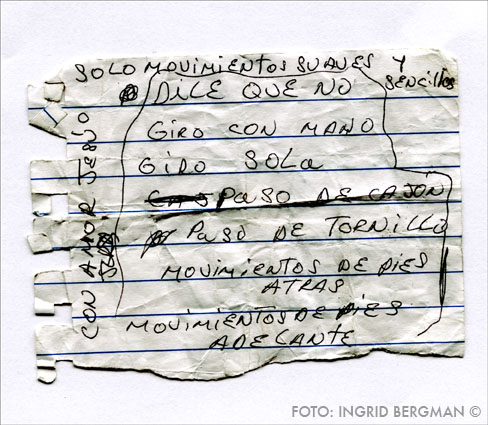 SOLO MOVIMIENTOS SUAVES Y SENCILLOS
DILE QUE NO
GIRO CON MANO
GIRO SOLA
PASO DE CAJÓN
PASO DE TORNILLO
MOVIMIENTOS DE PIES
ATRAS
MOVIMIENTOS DE PIES
ADELANTE
CON AMOR JESÚS
FOTO: INGRID BERGMAN ©